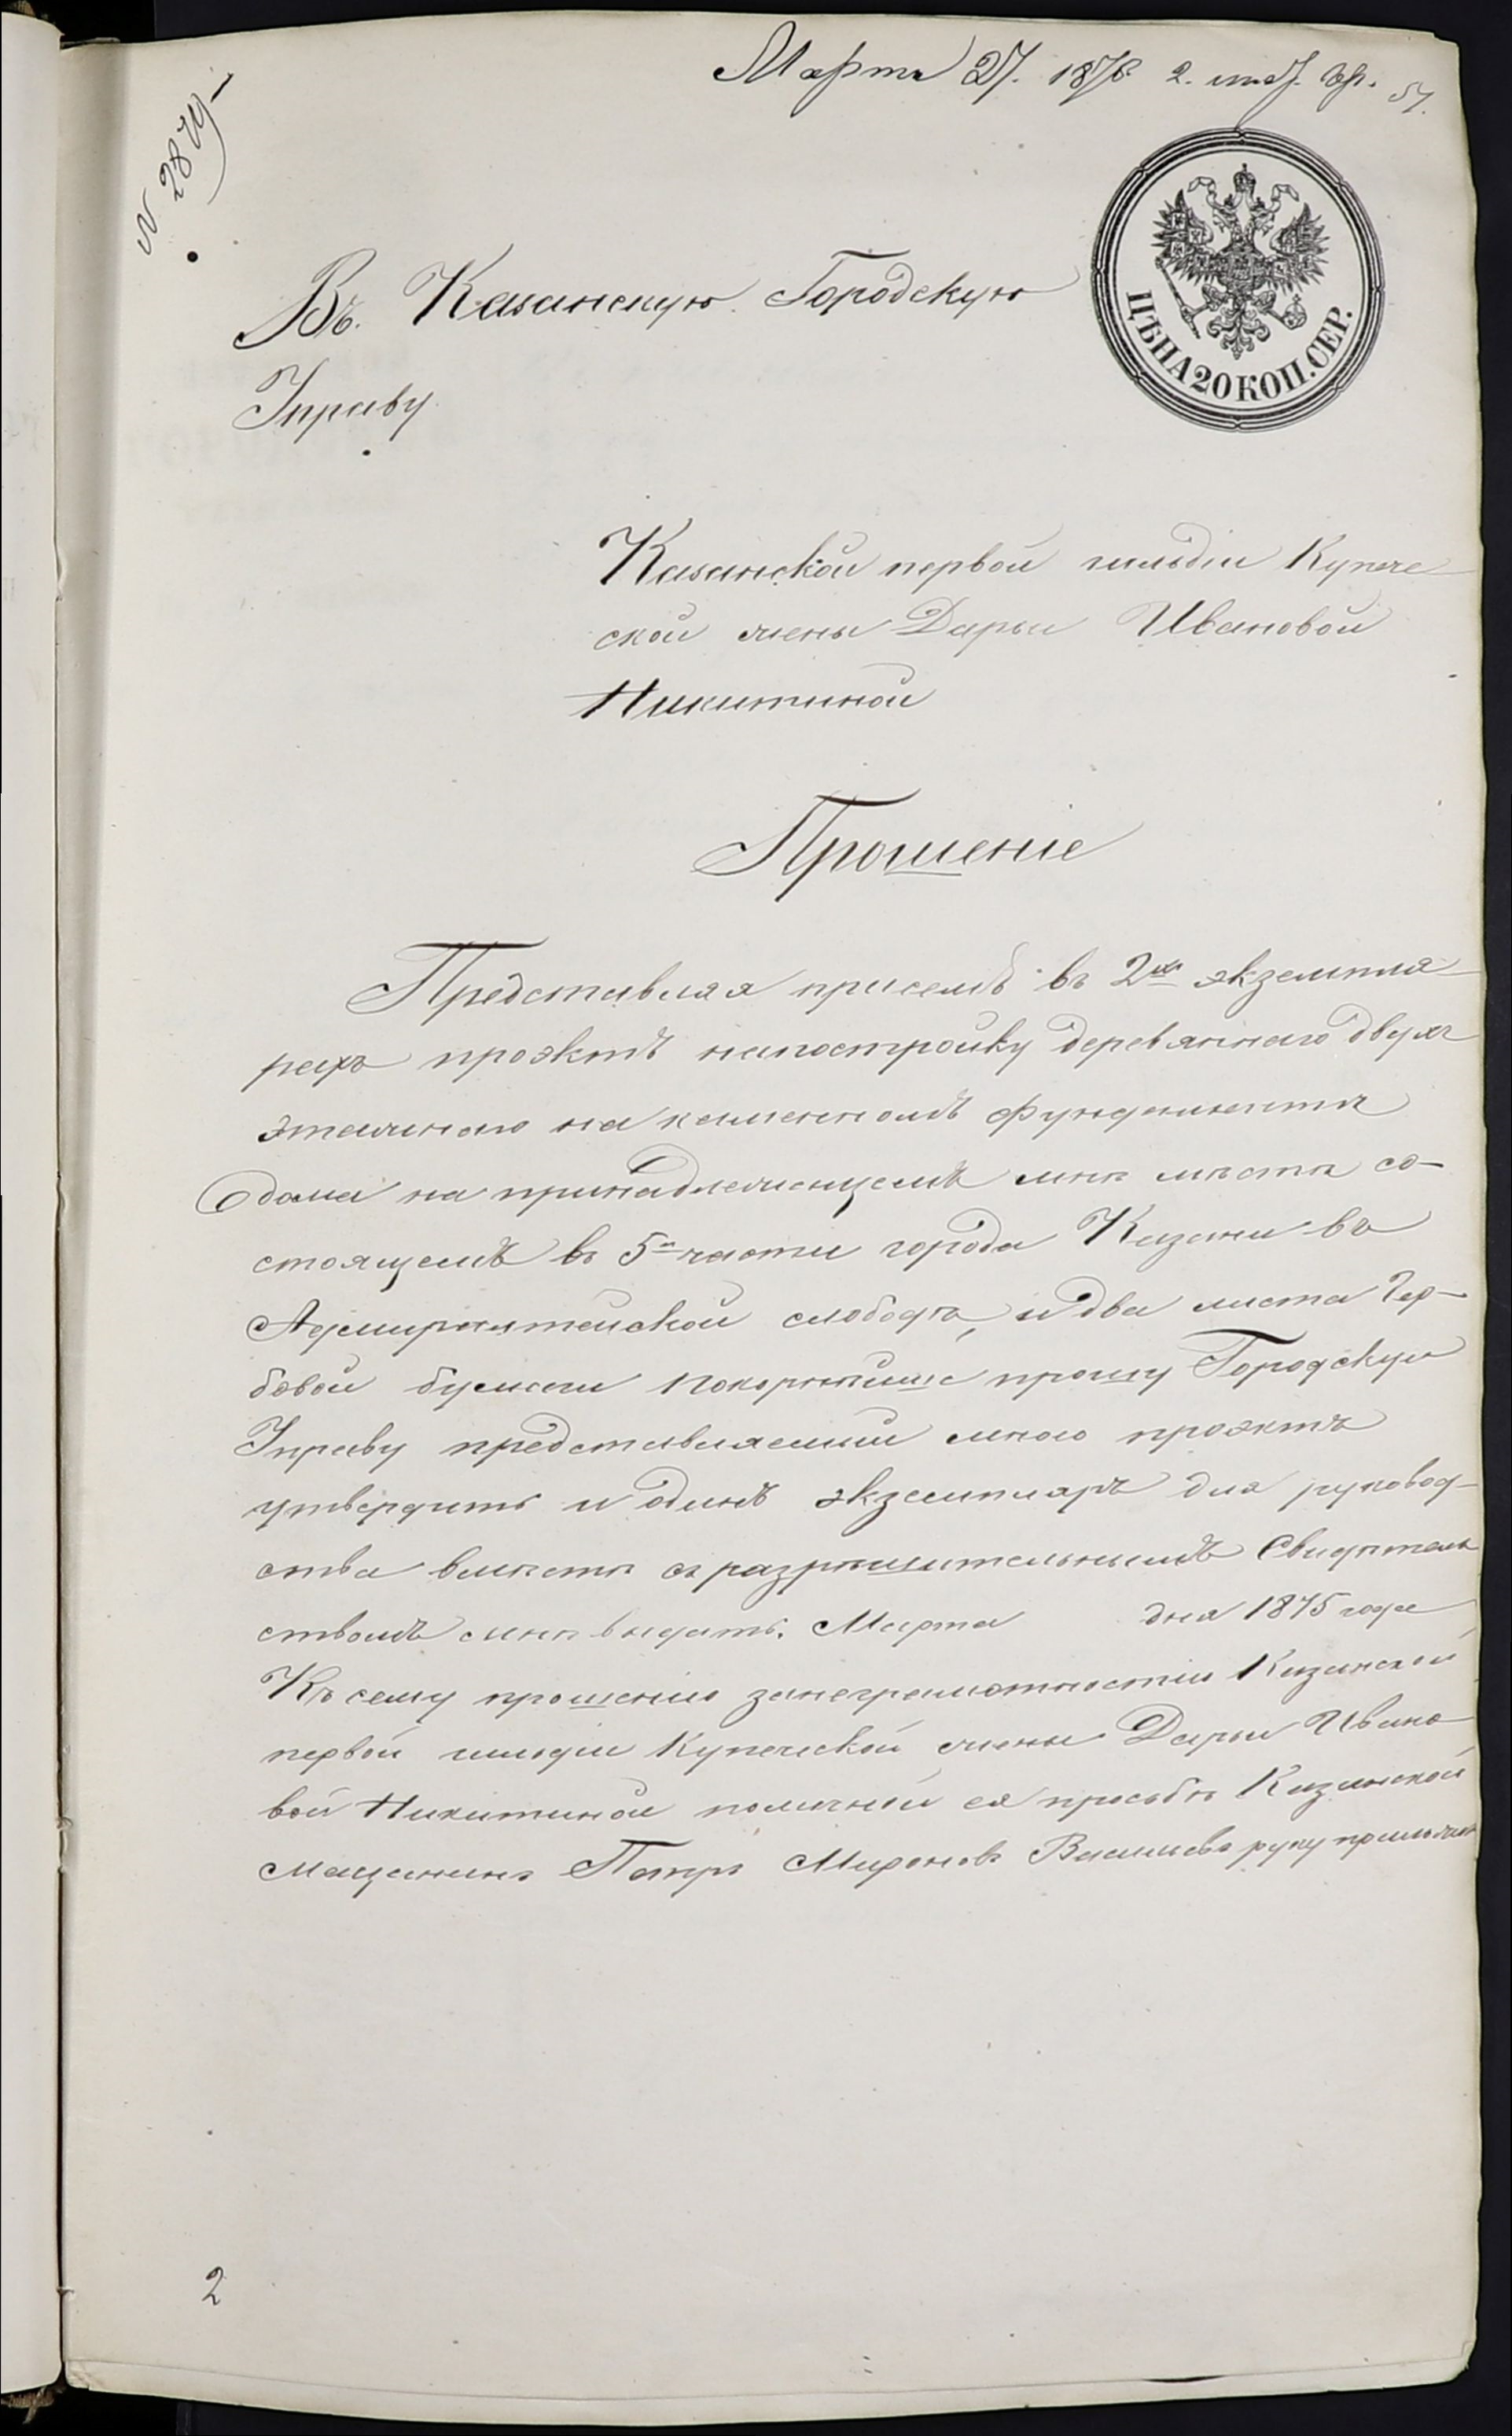 Марта 27. 1875 2. 57.
N 2879
ЦѢНА 20 КОП. СЕР.
Въ Казанскую Городскую
Управу
Казанской первой гильдіи Купече
ской жены Дарьи Ивановой
Никитиной
Прошеніе
Представляя присемъ въ 2хъ экземпля
рахъ проэктъ напостройку деревяннаго двухъ
этажнаго на каменномъ фундаментѣ
дома на принадлежащемъ мнѣ мѣстѣ со-
стоящемъ въ 5й части города Казани въ
Адмиралтейской слободѣ, и два листа Гер-
бовой бумаги покорнѣйше прошу Городскую
Управу представляемый мною проэктъ
утвердить и одинъ экземпляръ для руковод-
ства вмѣстѣ съ разрѣшительнымъ Свидѣтель
ствомъ мнѣ выдать. Марта дня 1875 года
Къ сему прошенію занеграмотностію Казанской
первой гильдіи Купеческой жены Дарьи Ивано
вой Никитиной поличной ея просьбѣ Казанской
мещанинъ Петръ Мироновъ Васильевъ руку приложилъ
2